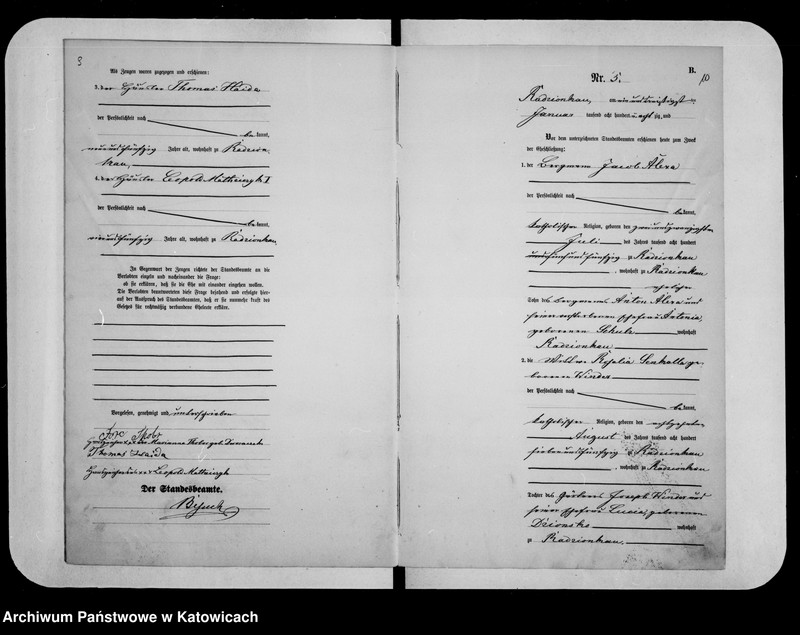 3
Als Zeugen waren zugezogen und erschienen:
3. der Häusler Thomas Haida
der Persönlichkeit nach
bekannt,
neunundfünfzig Jahre alt, wohnhaft zu Radzion-
kau,
4. der Häusler Leopold I
der Persönlichkeit nach
bekannt,
vierundfünfzig Jahre alt, wohnhaft zu Radzionkau
In Gegenwart der Zeugen richtete der Standesbeamte an die
Verlobten einzeln und nacheinander die Frage:
ob sie erklären, daß sie die Ehe mit einander eingehen wollen.
Die Verlobten beantworteten diese Frage bejahend und erfolgte hier-
auf der Ausspruch des Standesbeamten, daß er sie nunmehr kraft des
Gesetzes für rechtmäßig verbundene Eheleute erkläre.
Vorgelesen, genehmigt und unterschrieben
Handzeichen der Marianne geb.
Thomas Haida
Handzeichen des Leopold
Der Standesbeamte.
B.
Nr. 5.
10
Radzionkau, am einunddreißigsten
Januar tausend acht hundert achtzig und
Vor dem unterzeichneten Standesbeamten erschienen heute zum Zweck
der Eheschließung:
1. der Bergmann Jacob
der Persönlichkeit nach
bekannt,
katholischer Religion, geboren den zweiundzwanzigsten
Juli des Jahres tausend acht hundert
fünfundfünfzig zu Radzionkau
, wohnhaft zu Radzionkau
Sohn des Bergmanns Anton und
seiner verstorbenen Ehefrau Antonie,
geborenen Schulz wohnhaft
Radzionkau
2. die Wittwe Rosalia ge-
borene Winder
der Persönlichkeit nach
bekannt,
katholischer Religion, geboren den
August des Jahres tausend acht hundert
siebenundfünfzig zu Radzionkau
, wohnhaft zu Radzionkau
Tochter des Joseph Winder und
seiner Ehefrau Lucie, geborenen
wohnhaft
zu Radzionkau.
Archiwum Państwowe w Katowicach